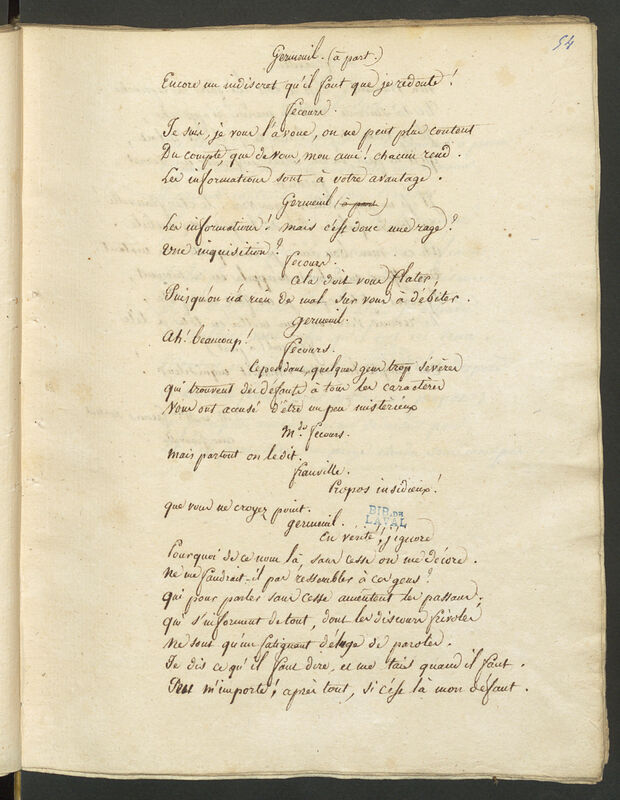 54
Germeuil. (à part.)
Encore un indiscret qu'il faut que je redoute !
Fecours.
Je suis, je vous l'avoue, on ne peut plus content
Du compte, que de vous, mon ami ! chacun rend.
Les informations sont à votre avantage.
Germeuil (à part)
Les informations ! mais c'est donc une rage ?
Une inquisition ?
Fecours.
Cela doit vous flater,
Puisqu'on n'a rien de mal sur vous à débiter.
Germeuil.
Ah ! beaucoup !
Fecours.
Cependant, quelques gens trop sévères
qui trouvent des défauts à tous les caractères
Vous ont accusé d'être un peu mistérieux
Mde. Fecours.
Mais partout on le dit.
franville.
Propos insidieux !
que vous ne croyez point.
BIB. DE
LAVAL
germeuil.
En vérité, j'ignore
Pourquoi de ce nom là, sans cesse on me décore.
Ne me faudrait-il pas ressembler à ces gens ?
qui pour parler sans cesse ameutent les passans ;
qui s'informent de tout, dont les discours frivoles
Ne sont qu'un fatiguant déluge de paroles.
Je dis ce qu'il faut dire, et me tais quand il faut.
Peu m'importe ! après tout, si c'est là mon défaut.